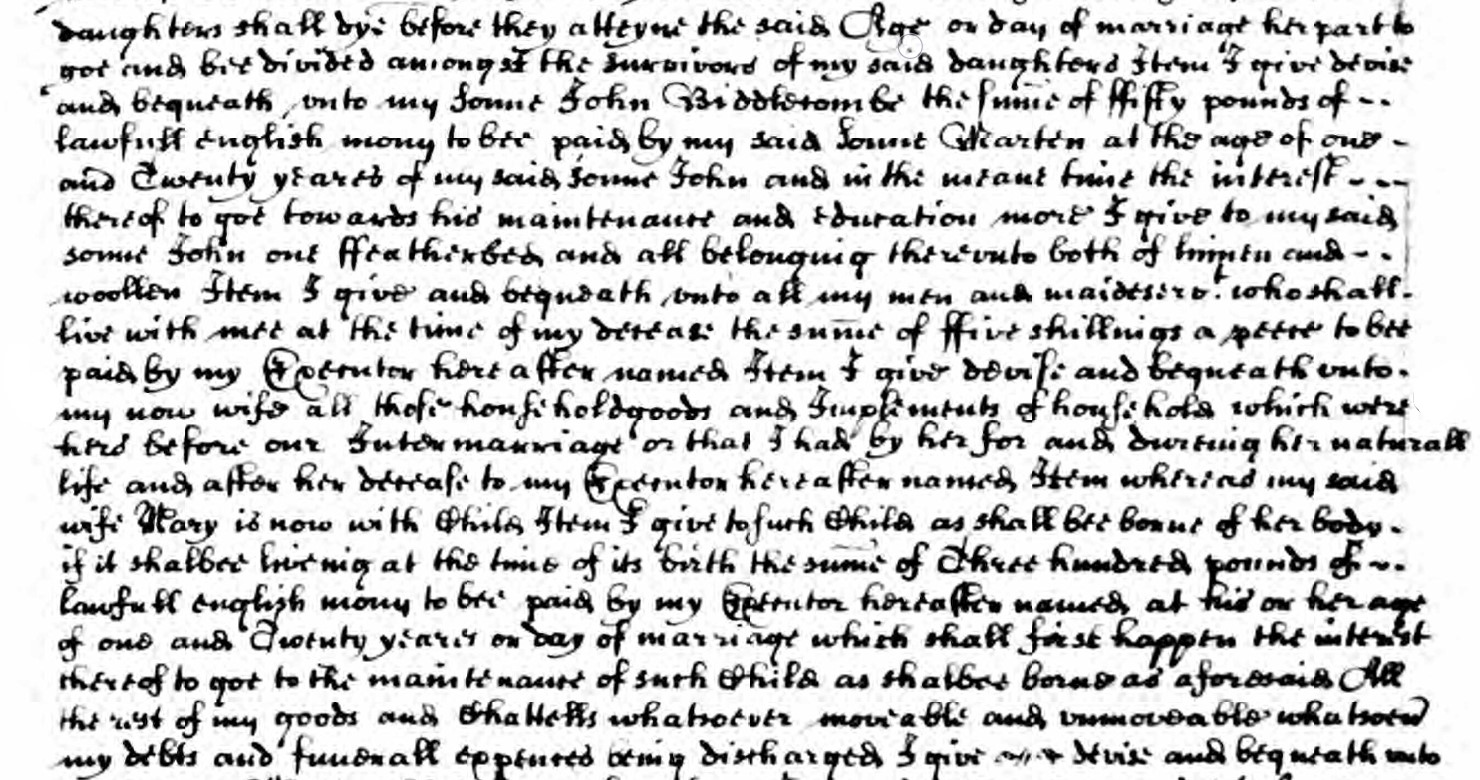 daughters shall dye before they atteyne the said Age or day of marriage her part to
goe and bee divided amongst the survivors of my said daughters Item I give devise
and bequeath vnto my sonne John Biddlecombe the sum̄e of ffifty pounds of - -
lawfull english mony to bee paid by my said sonne Marten at the age of one -
and Twenty yeares of my said sonne John and in the meane time the interest - - -
thereof to goe towards his maintenance and education more I give to my said
sonne John one ffeatherbed and all belonging therevnto both of linnen and - -
woollen Item I give and bequeath vnto all my men and maideserv: who shall.
live with mee at the time of my decease the sum̄e of ffive shillings a peece to bee
paid by my Executor hereafter named Item I give devise and bequeath vnto.
my now wife all those householdgoods and Implements of household which were
hers before our Intermarriage or that I had by her for and dureing her naturall
life and after her decease to my Executor hereafter named Item whereas my said
wife Mary is now with Child Item I give to such Child as shall bee borne of her body.
if it shalbee liveing at the time of its birth the sum̄e of Three hundred pounds of - -
lawfull english mony to bee paid by my Executor hereafter named at his or her age
of one and Twenty yeares or day of marriage which shall first happen the interest
thereof to goe to the maintenance of such Child as shalbee borne as aforesaid All
the rest of my goods and Chattells whatsoever moveable and vnmoveable whatsoever
my debts and funerall expences being discharged I give devise and bequeath vnto